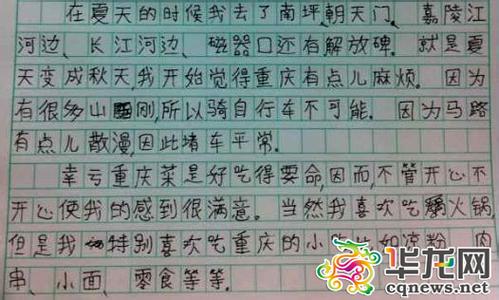 在夏天的时候我去了南坪、朝天门、嘉陵江
河边、长江河边、磁器口还有解放碑。就是夏
天变成秋天,我开始觉得重庆有点儿麻烦。因为
有很多山刚所以骑自行车不可能。因为马路
有点儿散漫,因此堵车平常。
幸亏重庆菜是好吃得要命,因而,不管开心不
开心使我的感到很满意。当然我喜欢吃火锅
但是我特别喜欢吃重庆的小吃比如凉粉、肉
串、小面、零食等等。
华龙网
cqnews.net